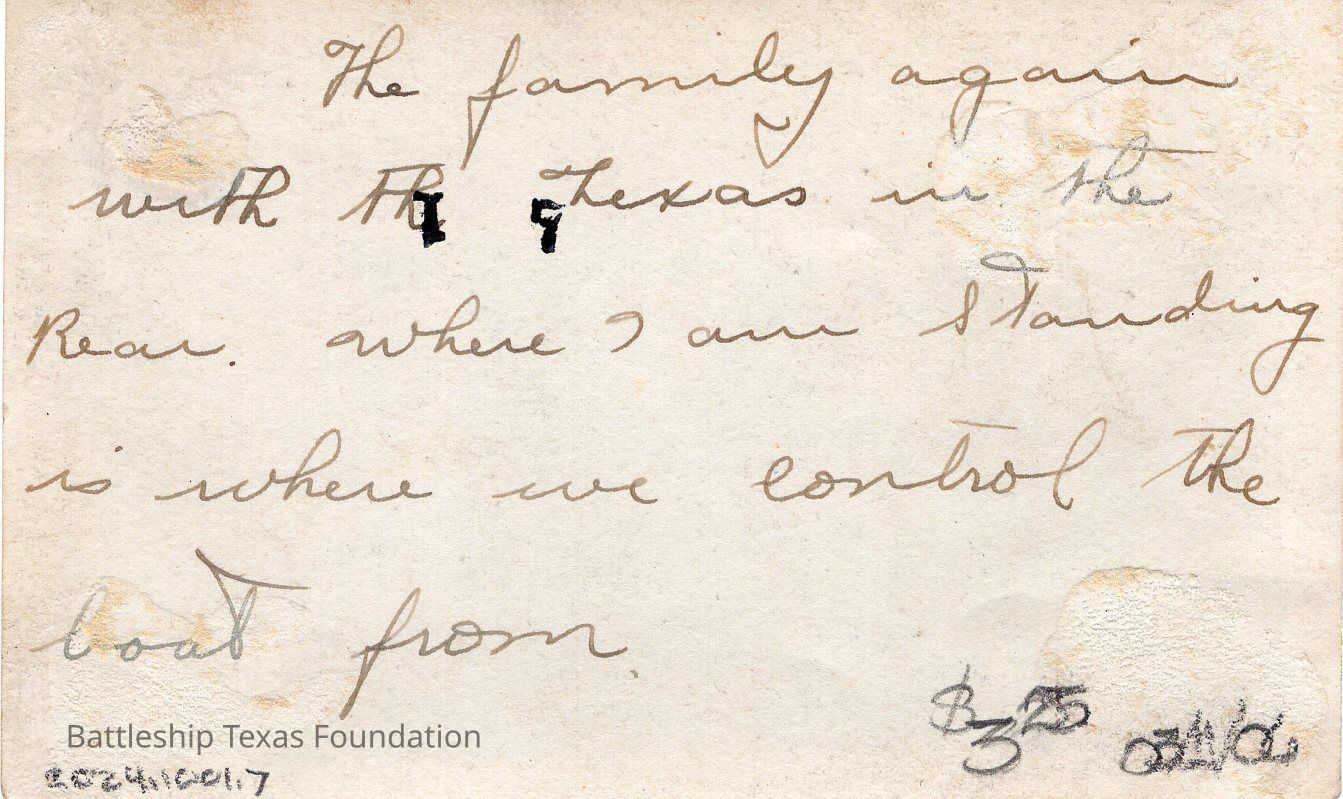 The family again
with the Texas in the
Rear. where I am standing
is where we control the
boat from.
$3.25
Battleship Texas Foundation
2024.1001.7